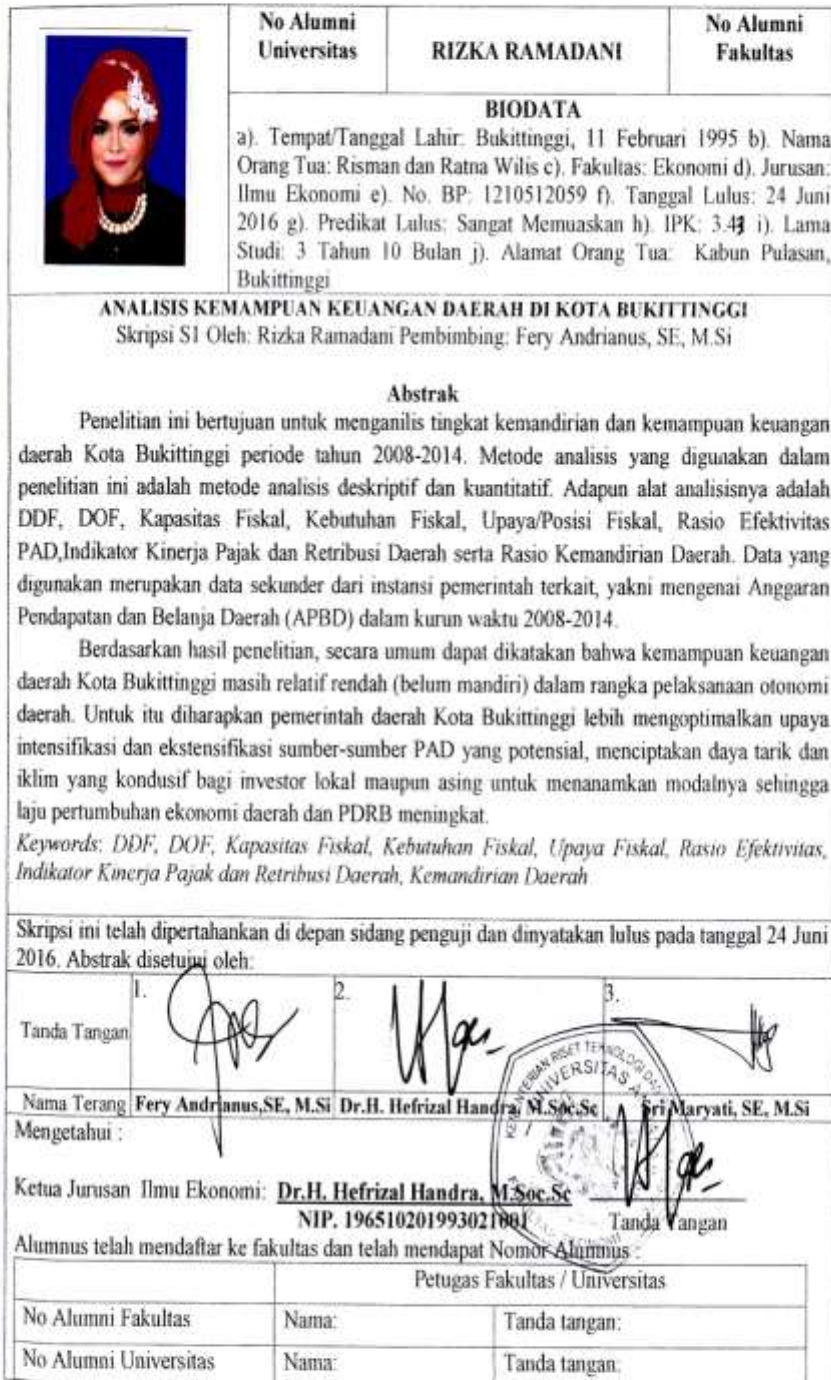 No Alumni
Universitas
RIZKA RAMADANI
No Alumni
Fakultas
BIODATA
a). Tempat/Tanggal Lahir: Bukittinggi, 11 Februari 1995 b). Nama
Orang Tua: Risman dan Ratna Wilis c). Fakultas: Ekonomi d). Jurusan:
Ilmu Ekonomi e). No. BP: 1210512059 f). Tanggal Lulus: 24 Juni
2016 g). Predikat Lulus: Sangat Memuaskan h). IPK: i). Lama
Studi: 3 Tahun 10 Bulan j). Alamat Orang Tua: Kabun Pulasan,
Bukittinggi
ANALISIS KEMAMPUAN KEUANGAN DAERAH DI KOTA BUKITTINGGI
Skripsi S1 Oleh: Rizka Ramadani Pembimbing: Fery Andrianus, SE, M.Si
Abstrak
Penelitian ini bertujuan untuk menganilis tingkat kemandirian dan kemampuan keuangan
daerah Kota Bukittinggi periode tahun 2008-2014. Metode analisis yang digunakan dalam
penelitian ini adalah metode analisis deskriptif dan kuantitatif. Adapun alat analisisnya adalah
DDF, DOF, Kapasitas Fiskal, Kebutuhan Fiskal, Upaya/Posisi Fiskal, Rasio Efektivitas
PAD,Indikator Kinerja Pajak dan Retribusi Daerah serta Rasio Kemandirian Daerah. Data yang
digunakan merupakan data sekunder dari instansi pemerintah terkait, yakni mengenai Anggaran
Pendapatan dan Belanja Daerah (APBD) dalam kurun waktu 2008-2014.
Berdasarkan hasil penelitian, secara umum dapat dikatakan bahwa kemampuan keuangan
daerah Kota Bukittinggi masih relatif rendah (belum mandiri) dalam rangka pelaksanaan otonomi
daerah. Untuk itu diharapkan pemerintah daerah Kota Bukittinggi lebih mengoptimalkan upaya
intensifikasi dan ekstensifikasi sumber-sumber PAD yang potensial, menciptakan daya tarik dan
iklim yang kondusif bagi investor lokal maupun asing untuk menanamkan modalnya sehingga
laju pertumbuhan ekonomi daerah dan PDRB meningkat.
Keywords: DDF, DOF, Kapasitas Fiskal, Kebutuhan Fiskal, Upaya Fiskal, Rasio Efektivitas,
Indikator Kinerja Pajak dan Retribusi Daerah, Kemandirian Daerah
Skripsi ini telah dipertahankan di depan sidang penguji dan dinyatakan lulus pada tanggal 24 Juni
2016. Abstrak disetujui oleh:
Tanda Tangan
1.
2.
3.
Nama Terang
Fery Andrianus,SE, M.Si
Dr.H. Hefrizal Handra, M.Soc.Sc
Sri Maryati, SE, M.Si
Mengetahui :
Ketua Jurusan Ilmu Ekonomi: Dr.H. Hefrizal Handra, M.Soc.Sc
NIP. 196510201993021001
Tanda Tangan
Alumnus telah mendaftar ke fakultas dan telah mendapat Nomor Alumnus :
Petugas Fakultas / Universitas
No Alumni Fakultas
Nama:
Tanda tangan:
No Alumni Universitas
Nama:
Tanda tangan: